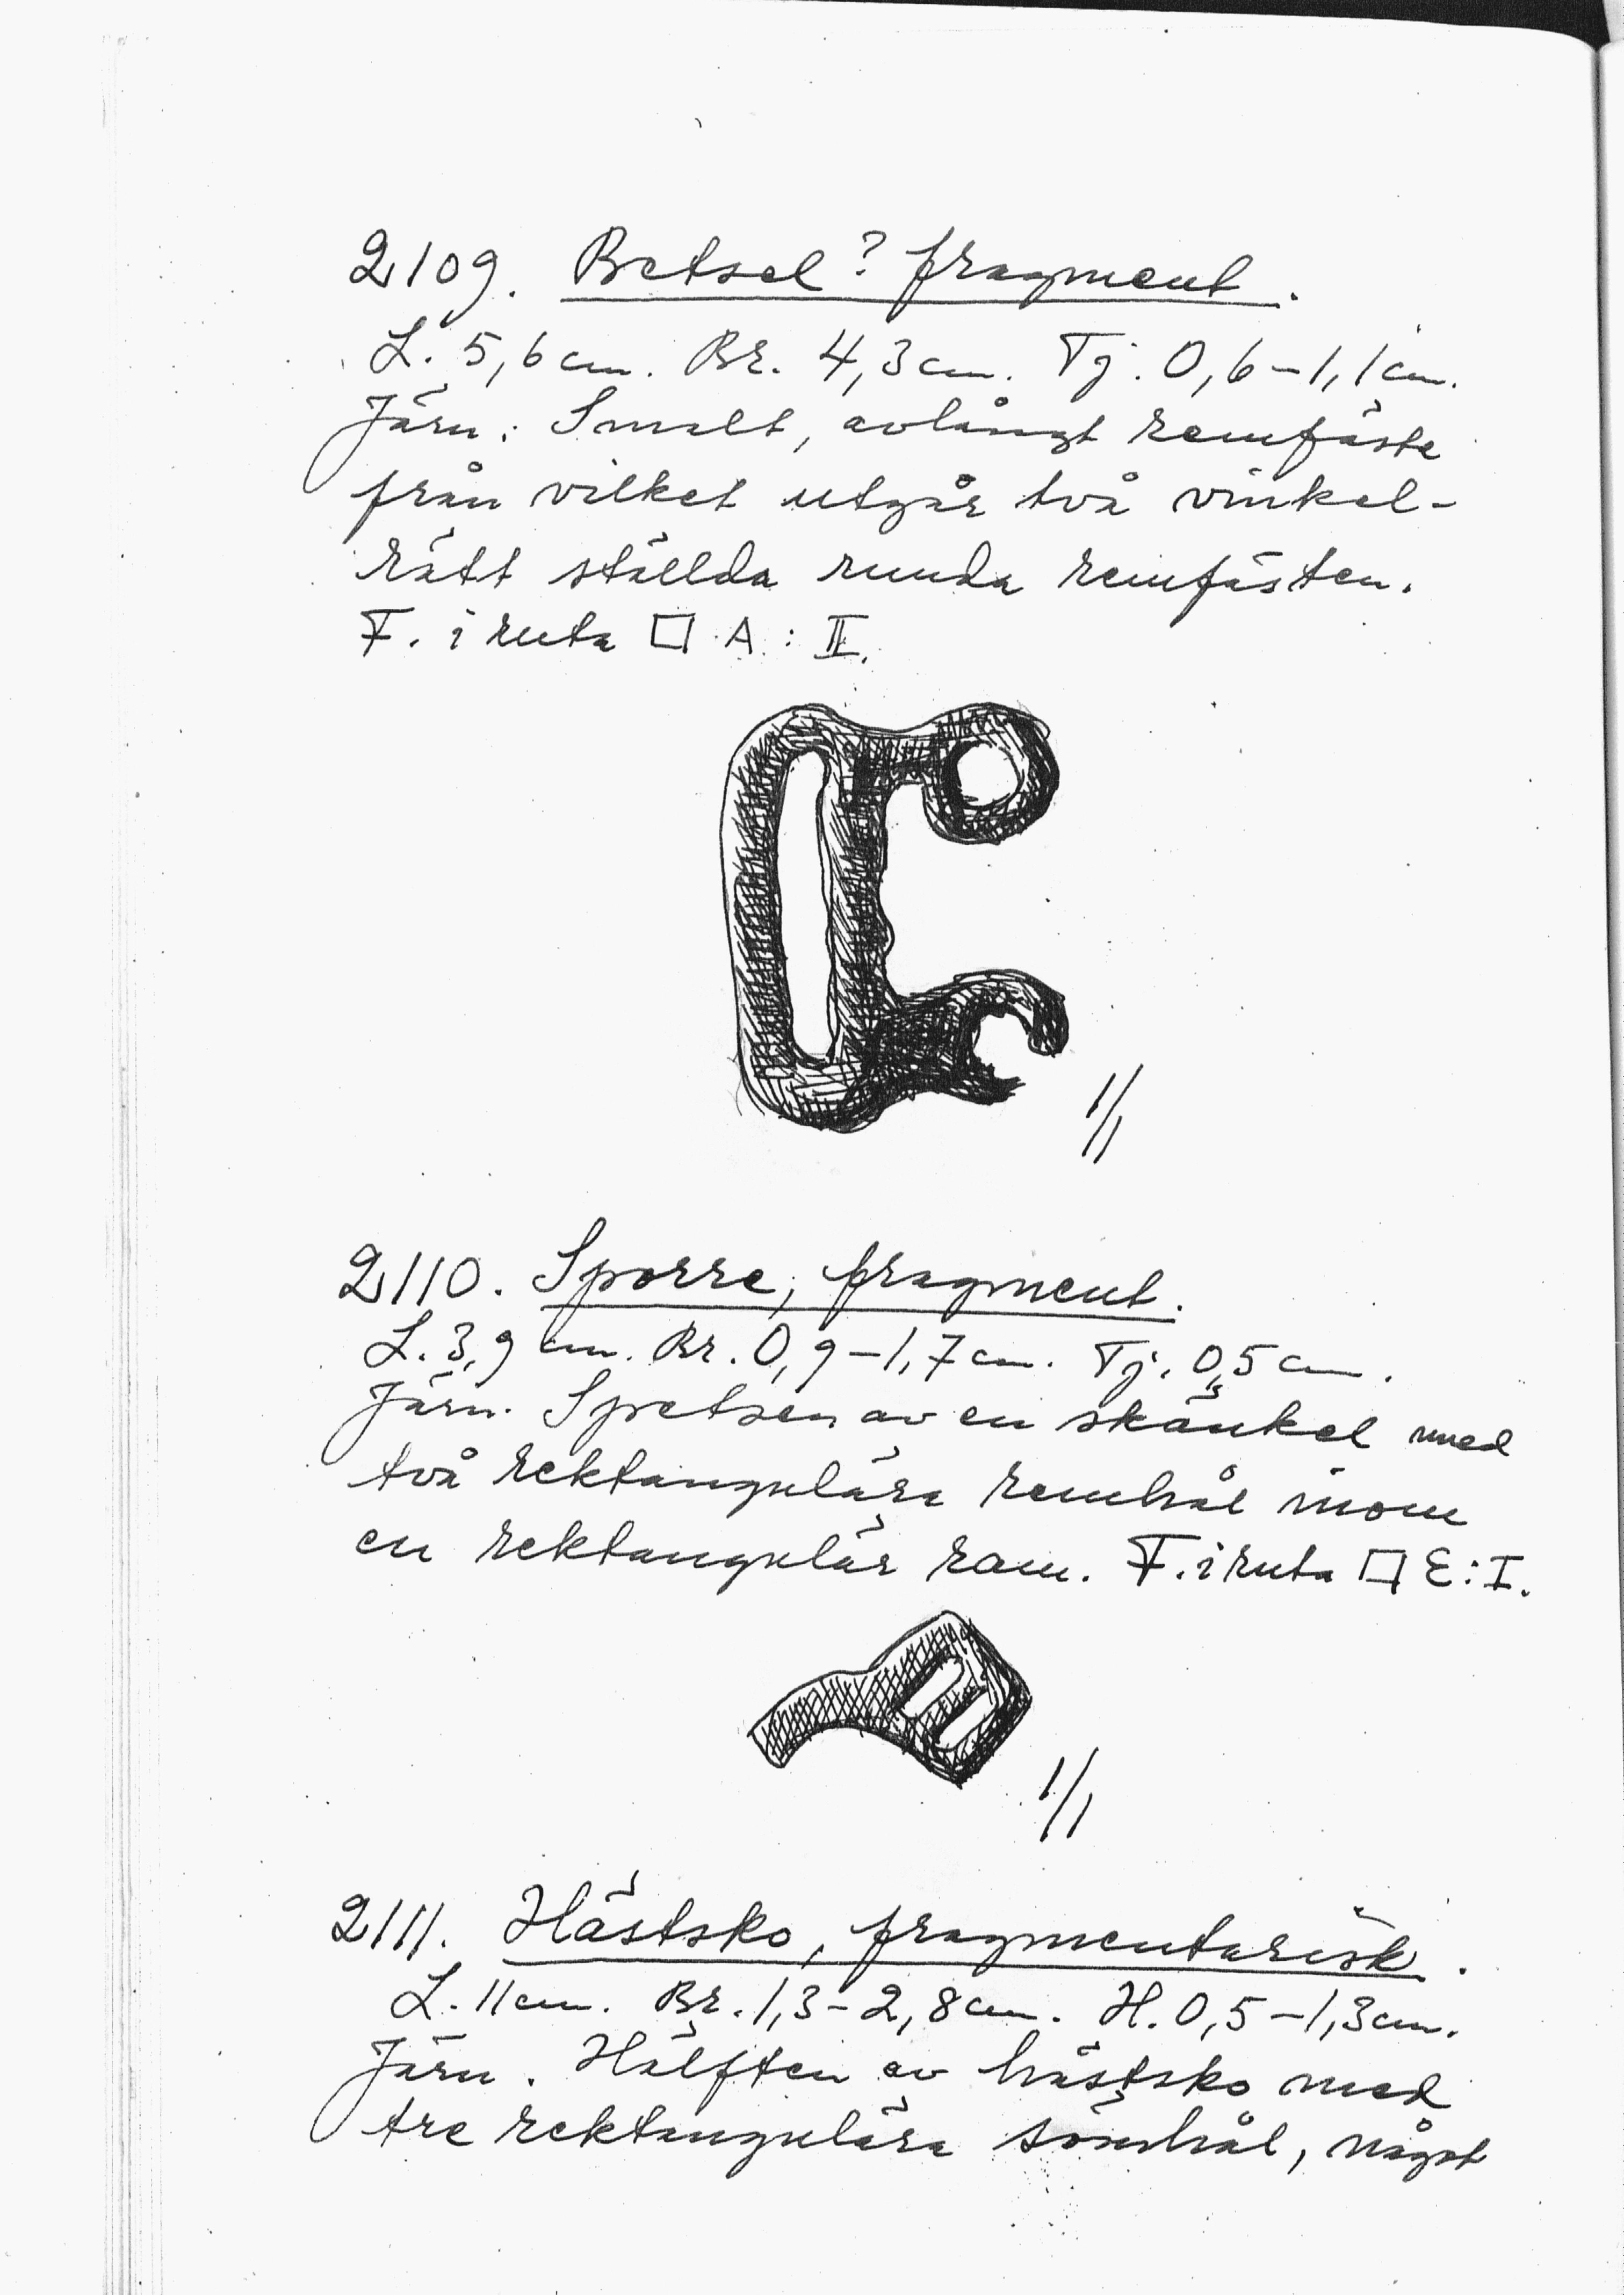 2109. Betsel? fragment.
L. 5,6 cm. Br. 4,3 cm. Tj. 0,6–1,1 cm.
Järn. Smalt, avlångt remfäste
från vilket utgår två vinkel-
rätt ställda runda remfästen.
F. i ruta □ A : II.
1/1
2110. Sporre, fragment.
L. 3,9 cm. Br. 0,9–1,7 cm. Tj. 0,5 cm.
Järn. Spetsen av en skänkel med
två rektangulära remhål inom
en rektangulär ram. F. i ruta □ E : I.
1/1
2111. Hästsko, fragmentarisk.
L. 11 cm. Br. 1,3–2,8 cm. H. 0,5–1,3 cm.
Järn. Hälften av hästsko med
tre rektangulära sömhål, något